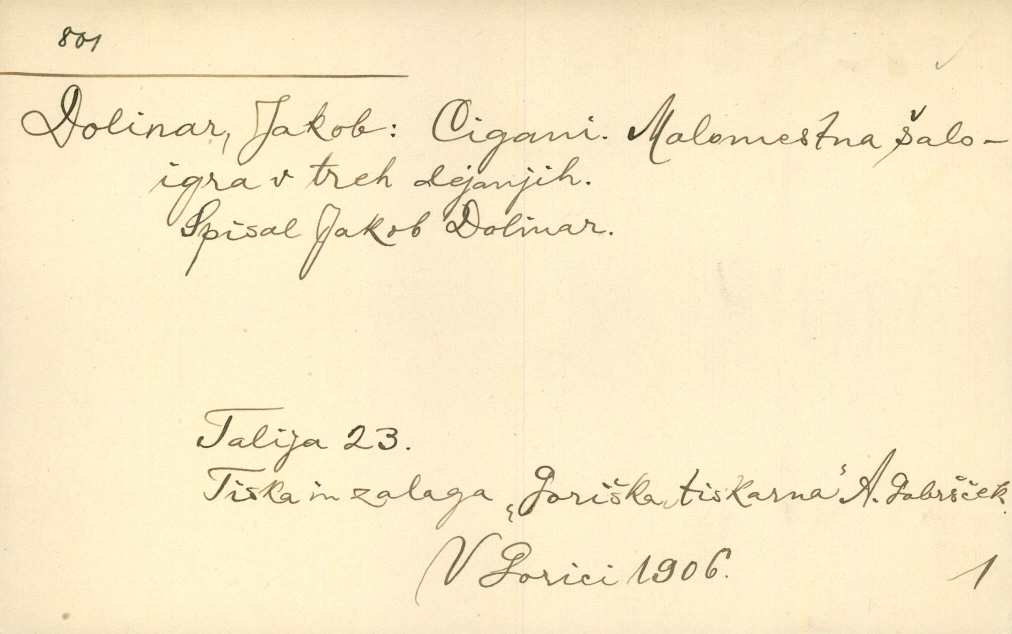 801
Dolinar, Jakob: Cigani. Malomestna šalo-
igra v treh dejanjih.
Spisal Jakob Dolinar.
Talija 23.
Tiska in zalaga „Goriška tiskarna“ A. Gabršček.
V Gorici 1906.
1